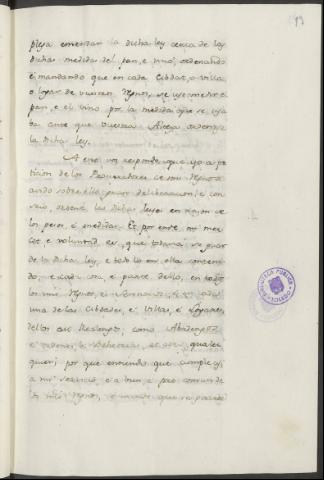 plega enmendar la dicha ley cerca de las
dichas medidas del pan, e vino, ordenando
e mandando que en cada Cibdat, o Villa
o logar de vuestros Regnos, se use medir el
pan, e el vino por la medida que se usa
ba ante que vuestra Alteza ordenase
la dicha ley.
A esto vos respondo que yo a pe
ticion de los Procuradores de mis Regnos
avido sobre ello deliberacion, e con
sejo, ordené las dichas leyes en razon de
los pesos, e medidas. Et por ende mi mer
ced e voluntad es, que todavia se guar
de la dicha ley, e todo lo en ella conteni
do, e cada cosa, e parte dello, en todos
los mis Regnos, e Sennorios, e en cada
una de las Cibdades, e Villas, e Logares
dellos asi Realengos, como Abadengos
e Ordenes, e Behetrias, e otros quales
quier; por que entiendo que cumple asi
a mi servicio, e a bien, e pro comun de
los mis Regnos, e mando que se guarde